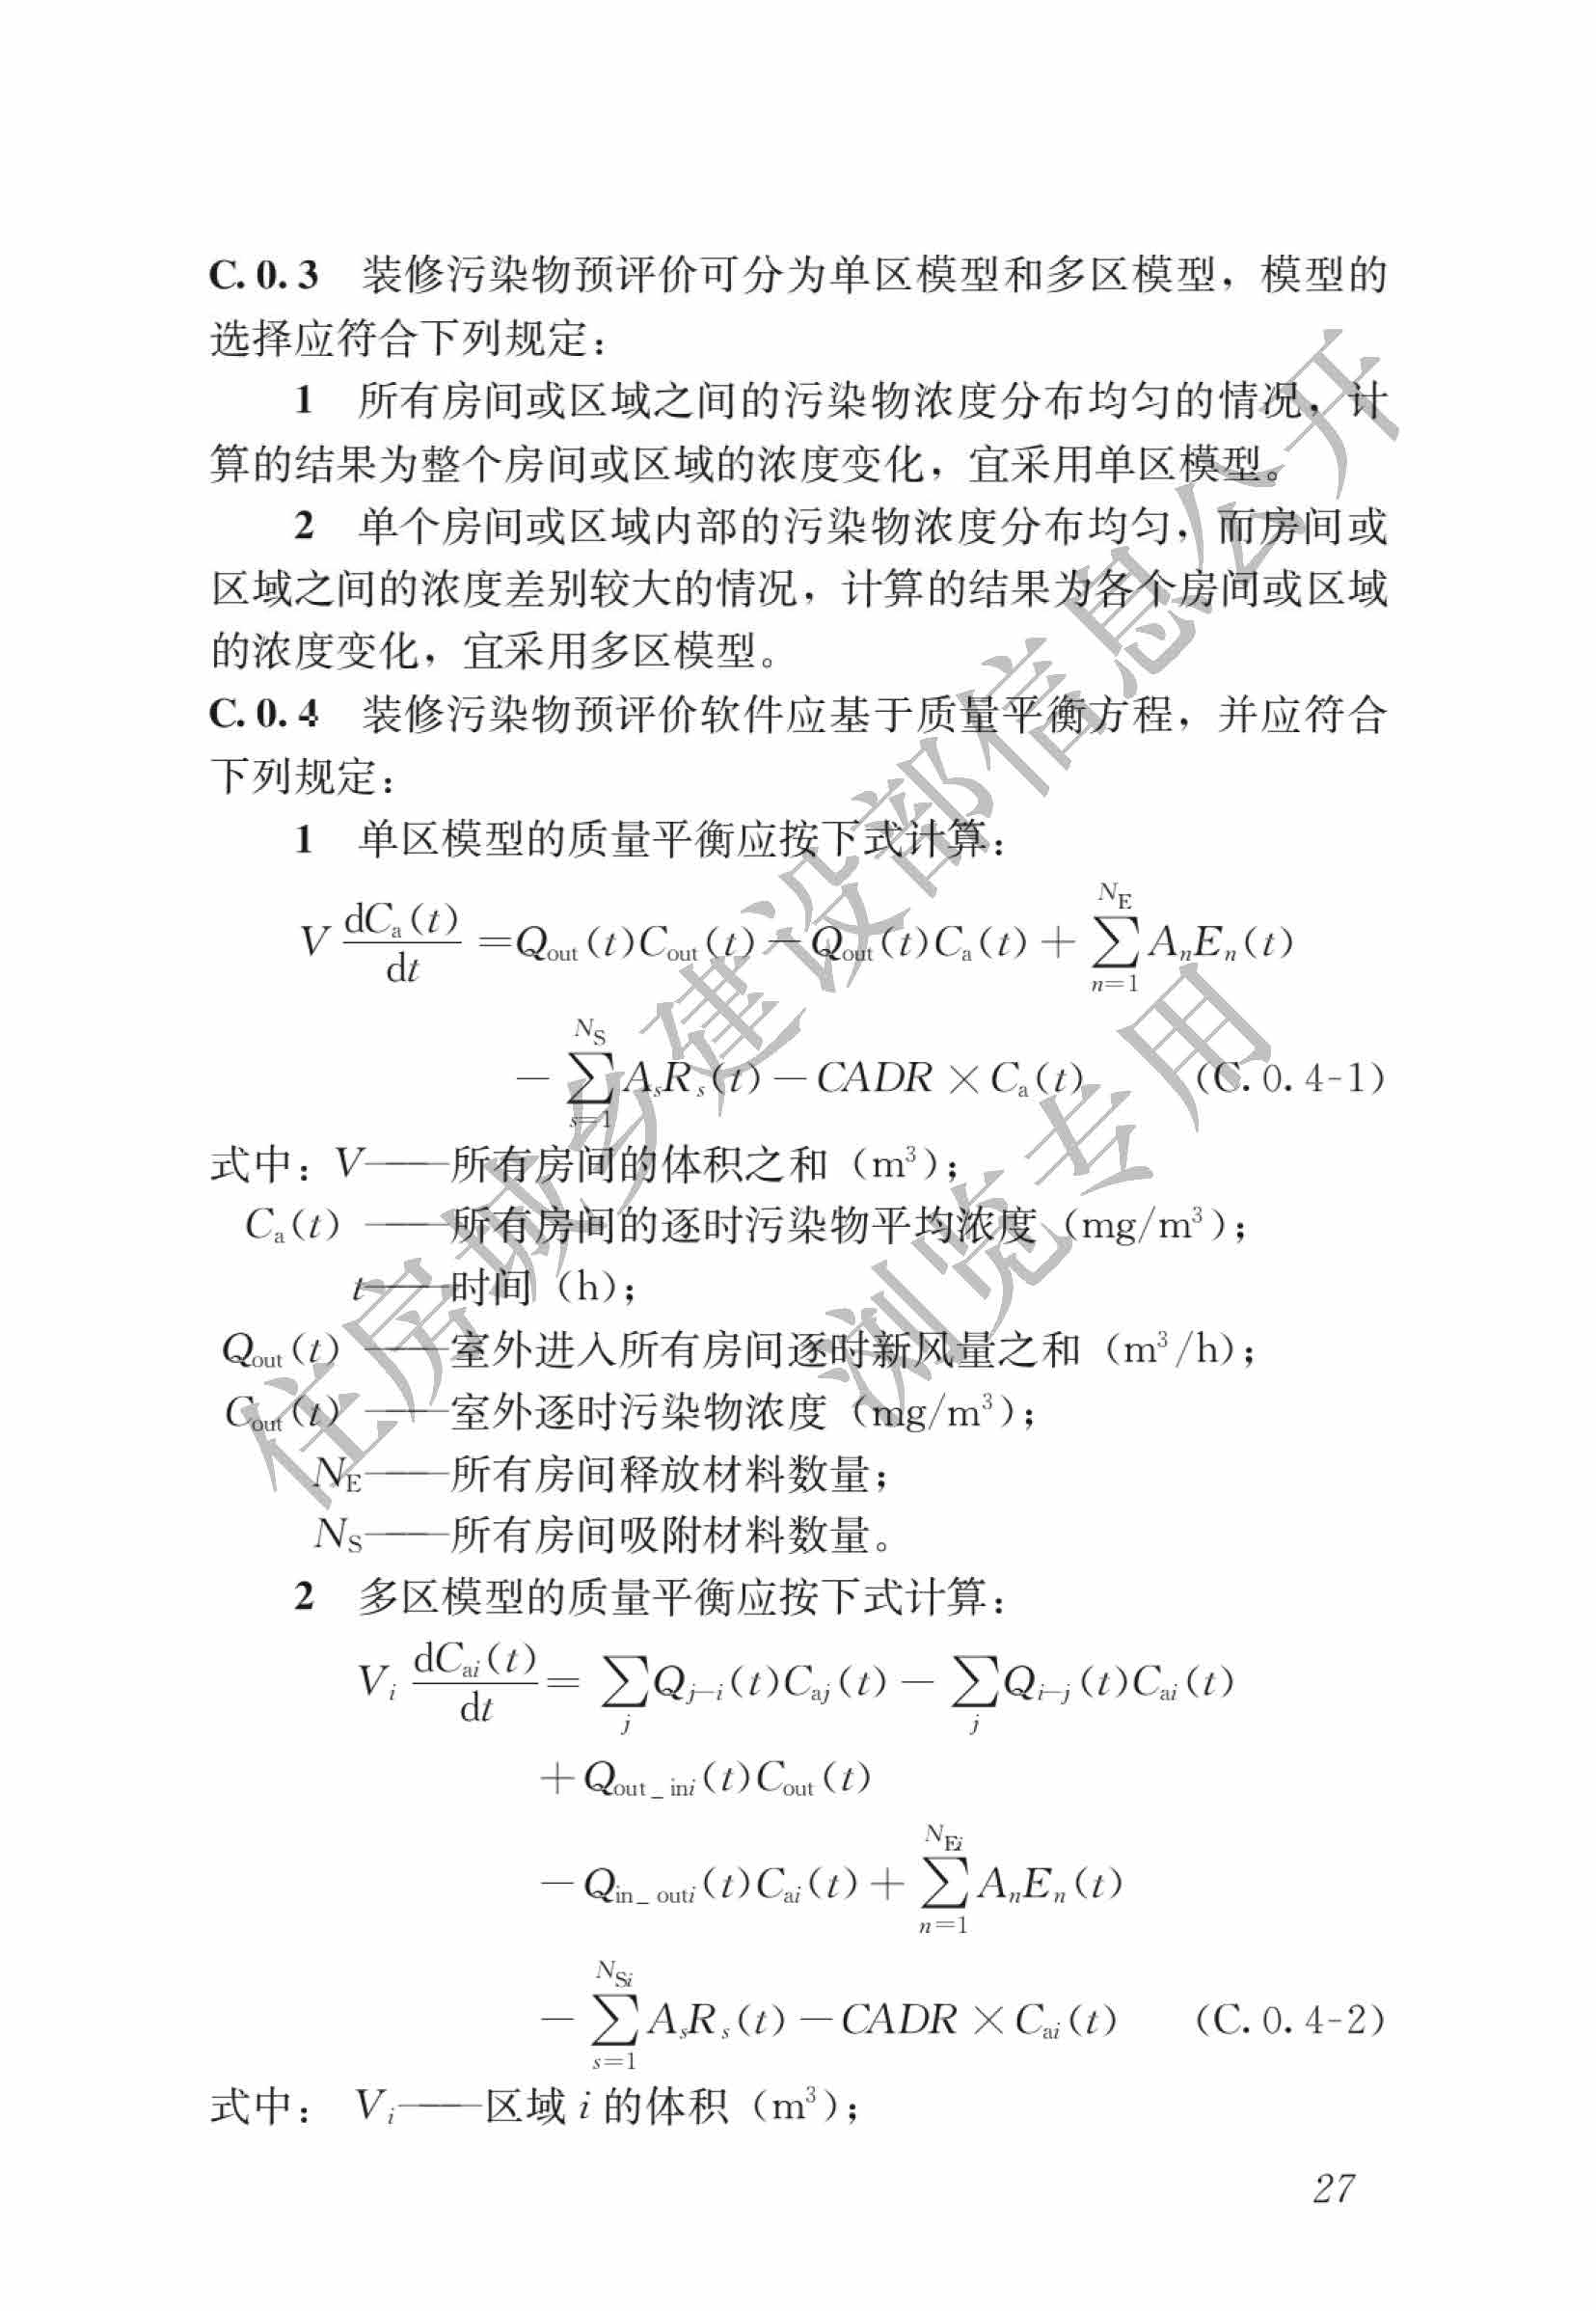 C.0.3 装修污染物预评价可分为单区模型和多区模型，模型的
选择应符合下列规定：
1 所有房间或区域之间的污染物浓度分布均匀的情况，计
算的结果为整个房间或区域的浓度变化，宜采用单区模型。
2 单个房间或区域内部的污染物浓度分布均匀，而房间或
区域之间的浓度差别较大的情况，计算的结果为各个房间或区域
的浓度变化，宜采用多区模型。
C.0.4 装修污染物预评价软件应基于质量平衡方程，并应符合
下列规定：
1 单区模型的质量平衡应按下式计算：
V dCa(t)/dt =Qout(t)Cout(t)－Qout(t)Ca(t)＋∑(n=1→NE) AnEn(t)
－∑(s=1→NS) AsRs(t)－CADR×Ca(t) (C.0.4-1)
式中：V——所有房间的体积之和（m³）；
Ca(t)——所有房间的逐时污染物平均浓度（mg/m³）；
t——时间（h）；
Qout(t)——室外进入所有房间逐时新风量之和（m³/h）；
Cout(t)——室外逐时污染物浓度（mg/m³）；
NE——所有房间释放材料数量；
NS——所有房间吸附材料数量。
2 多区模型的质量平衡应按下式计算：
Vi dCai(t)/dt = ∑j Qj—i(t)Caj(t)－∑j Qi—j(t)Cai(t)
＋Qout_ini(t)Cout(t)
－Qin_outi(t)Cai(t)＋∑(n=1→NEi) AnEn(t)
－∑(s=1→NSi) AsRs(t)－CADR×Cai(t) (C.0.4-2)
式中： Vi——区域 i 的体积（m³）；
27
住房城乡建设部信息公开
浏览专用